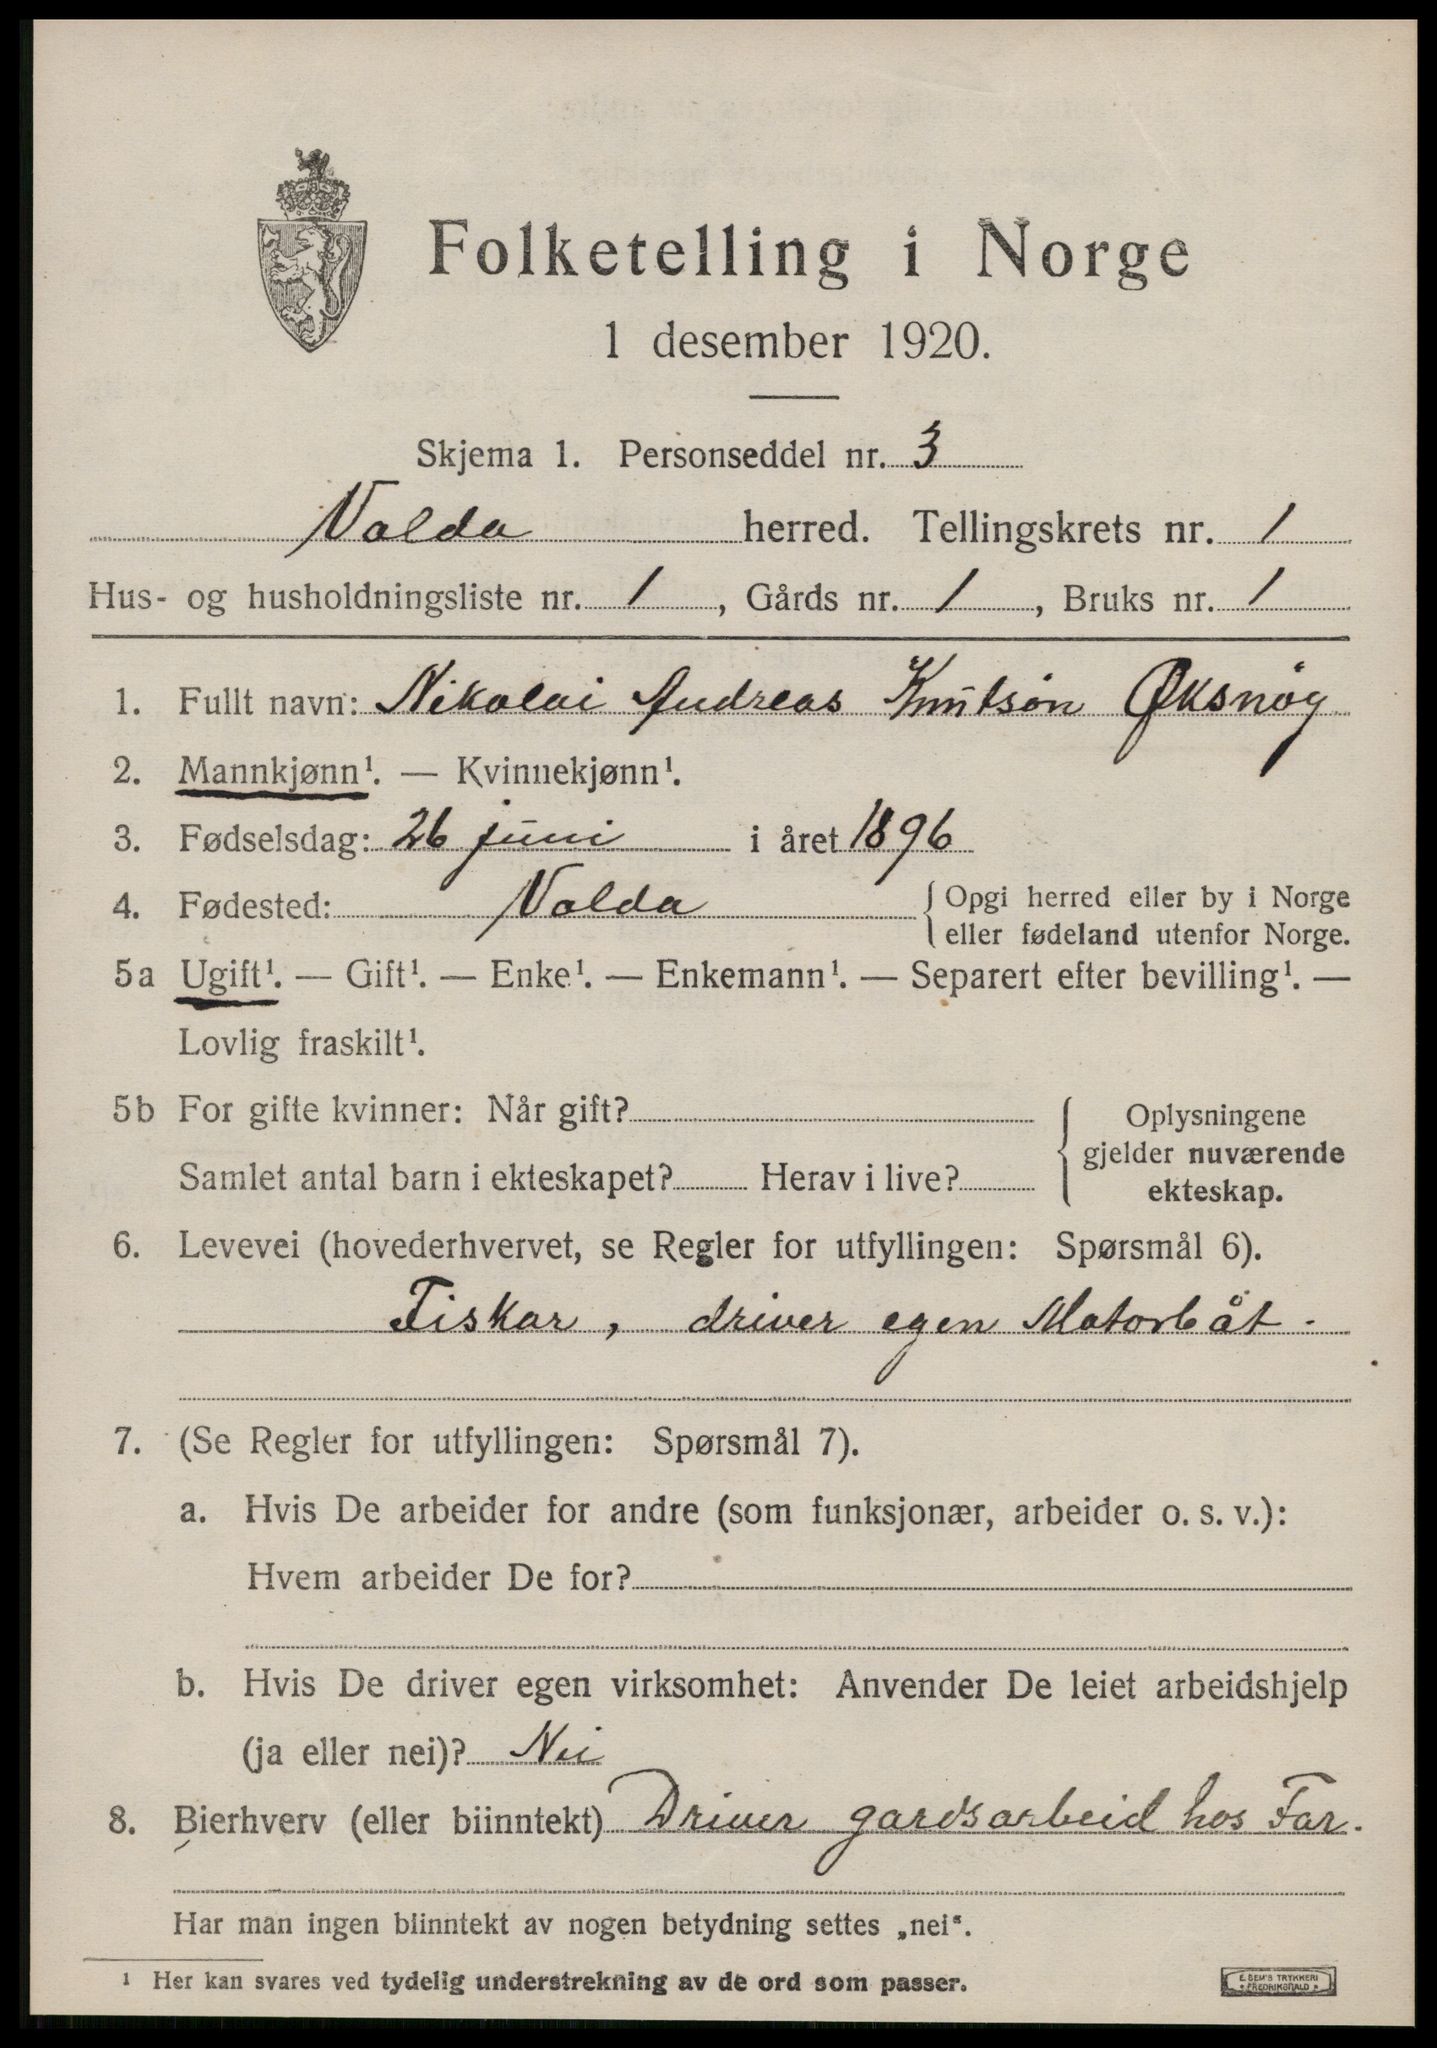 Folketelling i Norge
1 desember 1920.
Skjema 1. Personseddel nr. 3
Volda herred. Tellingskrets nr. 1
Hus- og husholdningsliste nr. 1, Gårds nr. 1, Bruks nr. 1
1. Fullt navn: Nikolai Andreas Knutson Øksnøy
2. Mannkjønn¹. — Kvinnekjønn¹.
3. Fødselsdag: 26 juni i året 1896
4. Fødested: Volda { Opgi herred eller by i Norge
eller fødeland utenfor Norge.
5a Ugift¹. — Gift¹. — Enke¹. — Enkemann¹. — Separert efter bevilling¹. —
Lovlig fraskilt¹.
5b For gifte kvinner: Når gift? { Oplysningene
gjelder nuværende
Samlet antal barn i ekteskapet? Herav i live? ekteskap.
6. Levevei (hovederhvervet, se Regler for utfyllingen: Spørsmål 6).
Fiskar, driver egen Motorbåt.
7. (Se Regler for utfyllingen: Spørsmål 7).
a. Hvis De arbeider for andre (som funksjonær, arbeider o. s. v.):
Hvem arbeider De for?
b. Hvis De driver egen virksomhet: Anvender De leiet arbeidshjelp
(ja eller nei)? Nei
8. Bierhverv (eller biinntekt) Driver gardsarbeid hos Far.
Har man ingen biinntekt av nogen betydning settes „nei“.
¹ Her kan svares ved tydelig understrekning av de ord som passer.
E. SEM'S TRYKKERI
FREDRIKSHALD